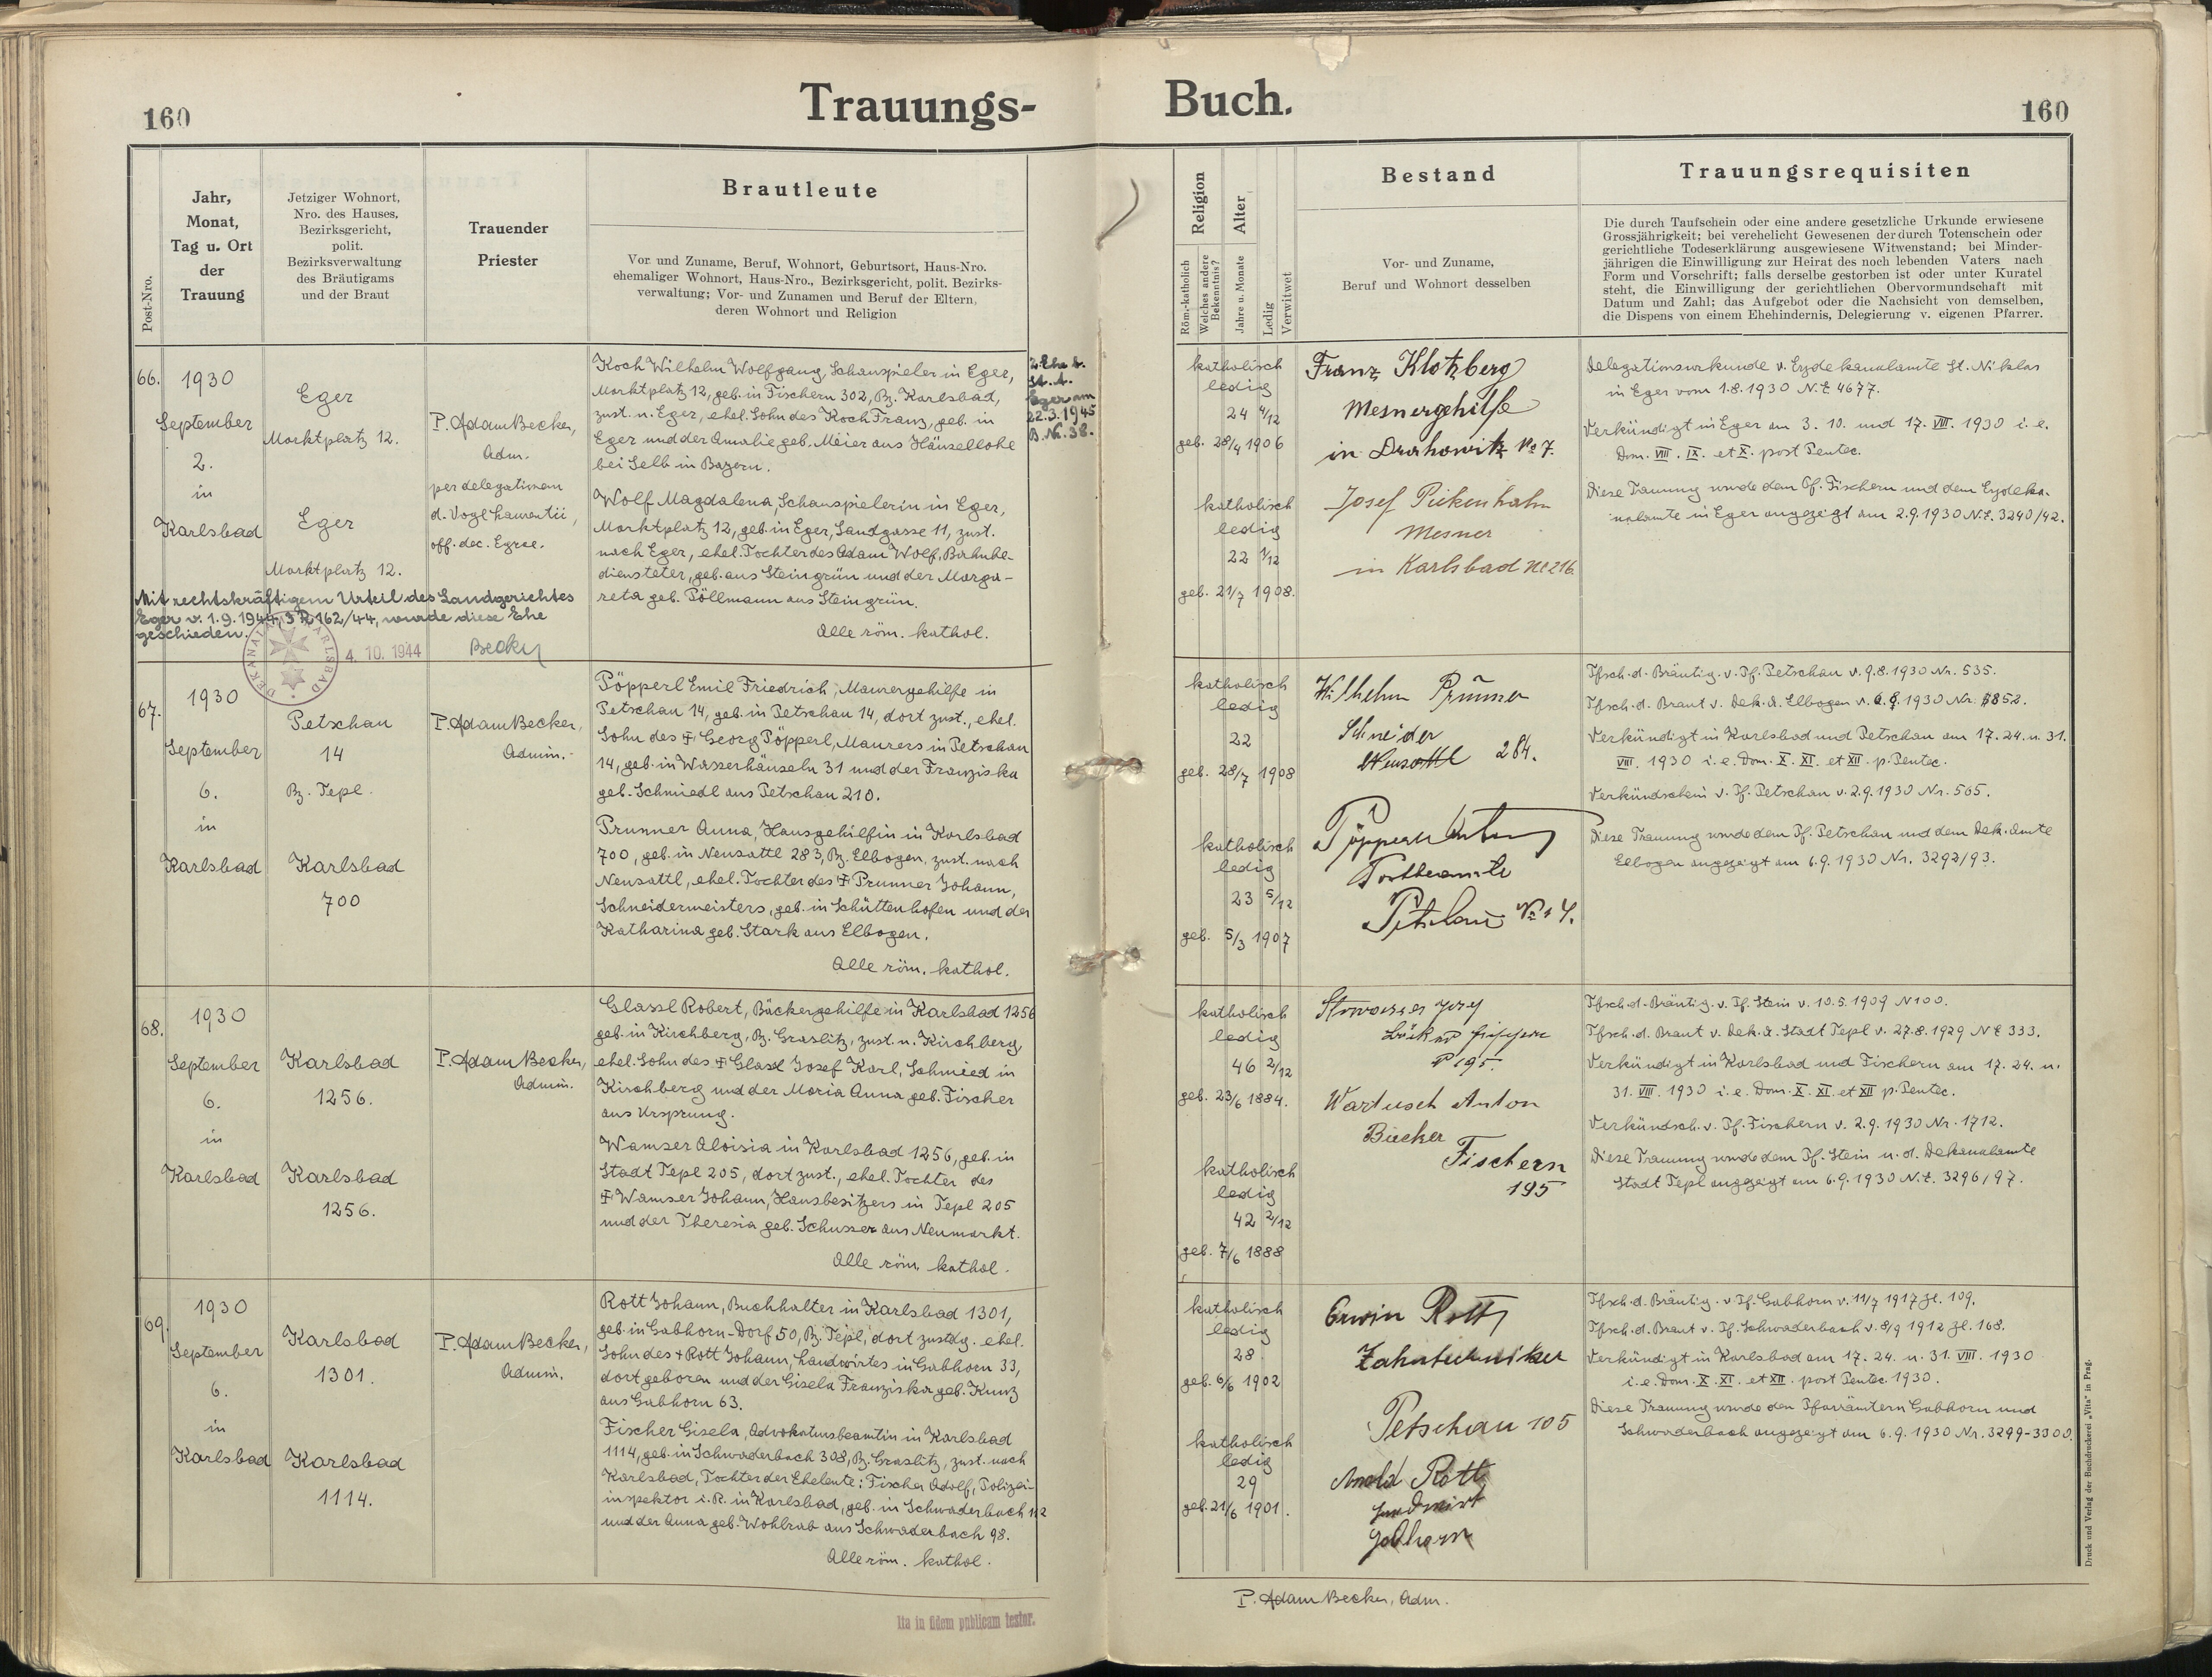 160
Trauungs-
Buch.
160
Post-Nro.
Jahr,
Monat,
Tag u. Ort
der
Trauung
Jetziger Wohnort,
Nro. des Hauses,
Bezirksgericht,
polit.
Bezirksverwaltung
des Bräutigams
und der Braut
Trauender
Priester
Brautleute
Vor und Zuname, Beruf, Wohnort, Geburtsort, Haus-Nro.
ehemaliger Wohnort, Haus-Nro., Bezirksgericht, polit. Bezirks-
verwaltung; Vor- und Zunamen und Beruf der Eltern,
deren Wohnort und Religion
Religion
Röm.-katholich
Welches andere
Bekenntnis?
Alter
Jahre u. Monate
Ledig
Verwitwet
Bestand
Vor- und Zuname,
Beruf und Wohnort desselben
Trauungsrequisiten
Die durch Taufschein oder eine andere gesetzliche Urkunde erwiesene
Grossjährigkeit; bei verehelicht Gewesenen der durch Totenschein oder
gerichtliche Todeserklärung ausgewiesene Witwenstand; bei Minder-
jährigen die Einwilligung zur Heirat des noch lebenden Vaters nach
Form und Vorschrift; falls derselbe gestorben ist oder unter Kuratel
steht, die Einwilligung der gerichtlichen Obervormundschaft mit
Datum und Zahl; das Aufgebot oder die Nachsicht von demselben,
die Dispens von einem Ehehindernis, Delegierung v. eigenen Pfarrer.
66.
1930
September
2.
in
Karlsbad
Eger
Marktplatz 12.
Eger
Marktplatz 12.
P. Adam Becker,
Adm.
per delegationem
d. Vogl Laurentii,
off. dec. Egrae.
Koch Wilhelm Wolfgang, Schauspieler in Eger,
Marktplatz 12, geb. in Fischern 302, Bz. Karlsbad,
zust. n. Eger, ehel. Sohn des Koch Franz, geb. in
Eger und der Amalie geb. Meier aus Häusellohe
bei Selb in Bayern.
Wolf Magdalena, Schauspielerin in Eger,
Marktplatz 12, geb. in Eger, Sandgasse 11, zust.
nach Eger, ehel. Tochter des Adam Wolf, Bahnbe-
diensteter, geb. aus Steingrün und der Marga-
reta geb. Pöllmann aus Steingrün.
Alle röm. kathol.
2. Ehe b.
St. A.
Eger am
22.3.1945
B. Nr. 38.
Mit rechtskräftigem Urteil des Landgerichtes
Eger v. 1.9.1944, 3 R 162/44, wurde diese Ehe
geschieden.
4. 10. 1944
Becker
DEKANALAMT KARLSBAD
katholisch
ledig
24 4/12
geb. 28/4 1906
katholisch
ledig
22 1/12
geb. 21/7 1908.
Franz Klotzberg
Mesnergehilfe
in Drahowitz No 7.
Josef Pickenhahn
Mesner
in Karlsbad No 216.
Delegationsurkunde v. Erzdekanalamte St. Niklas
in Eger vom 1.8.1930 N.E 4677.
Verkündigt in Eger am 3. 10. und 17. VIII. 1930 i. e.
Dom. VIII. IX. et X. post Pentec.
Diese Trauung wurde dem Pf. Fischern und dem Erzdeka-
nalamte in Eger angezeigt am 2.9.1930 N.E. 3240/42.
67.
1930
September
6.
in
Karlsbad
Petschau
14
Bz. Tepl.
Karlsbad
700
P. Adam Becker,
Admin.
Pöpperl Emil Friedrich, Maurergehilfe in
Petschau 14, geb. in Petschau 14, dort zust., ehel.
Sohn des ‡ Georg Pöpperl, Maurers in Petschau
14, geb. in Wasserhäuseln 31 und der Franziska
geb. Schmiedl aus Petschau 210.
Prunner Anna, Hausgehilfin in Karlsbad
700, geb. in Neusattl 283, Bz. Elbogen, zust. nach
Neusattl, ehel. Tochter des ‡ Prunner Johann,
Schneidermeisters, geb. in Schüttenhofen und der
Katharina geb. Stark aus Elbogen.
Alle röm. kathol.
katholisch
ledig
22
geb. 28/7 1908
katholisch
ledig
23 5/12
geb. 5/3 1907
Wilhelm Prunner
Schneider
Neusattl 284.
Pöpperl Anton
Postbeamte
Petschau No 14.
Tfsch. d. Bräutig. v. Pf. Petschau v. 9.8.1930 Nr. 535.
Tfsch. d. Braut v. Dek. A. Elbogen v. 6.8.1930 Nr. 852.
Verkündigt in Karlsbad und Petschau am 17. 24. u. 31.
VIII. 1930 i. e. Dom. X. XI. et XII. p. Pentec.
Verkündschein v. Pf. Petschau v. 2.9.1930 Nr. 565.
Diese Trauung wurde dem Pf. Petschau und dem Dek. Amte
Elbogen angezeigt am 6.9.1930 Nr. 3292/93.
68.
1930
September
6.
in
Karlsbad
Karlsbad
1256.
Karlsbad
1256.
P. Adam Becker,
Admin.
Glassl Robert, Bäckergehilfe in Karlsbad 1256
geb. in Kirchberg, Bz. Graslitz, zust. n. Kirchberg,
ehel. Sohn des ‡ Glassl Josef Karl, Schmied in
Kirchberg und der Maria Anna geb. Fischer
aus Ursprung.
Wamser Aloisia in Karlsbad 1256, geb. in
Stadt Tepl 205, dort zust., ehel. Tochter des
‡ Wamser Johann, Hausbesitzers in Tepl 205
und der Theresia geb. Schusser aus Neumarkt.
Alle röm. kathol.
katholisch
ledig
46 2/12
geb. 23/6 1884.
katholisch
ledig
42 2/12
geb. 7/6 1888
Stowasser Josef
Bäcker Fischern
No 195.
Wartusch Anton
Bäcker
Fischern
195
Tfsch. d. Bräutig. v. Pf. Stein v. 10.5.1909 N 100.
Tfsch. d. Braut v. Dek. A. Stadt Tepl v. 27.8.1929 N E 333.
Verkündigt in Karlsbad und Fischern am 17. 24. u.
31. VIII. 1930 i. e. Dom. X. XI. et XII p. Pentec.
Verkündsch. v. Pf. Fischern v. 2.9.1930 Nr. 1712.
Diese Trauung wurde dem Pf. Stein u. d. Dekanalamte
Stadt Tepl angezeigt am 6.9.1930 N.E. 3296/97.
69.
1930
September
6.
in
Karlsbad
Karlsbad
1301.
Karlsbad
1114.
P. Adam Becker,
Admin.
Rott Johann, Buchhalter in Karlsbad 1301,
geb. in Gabhorn-Dorf 50, Bz. Tepl, dort zustdg. ehel.
Sohn des + Rott Johann, Landwirtes in Gabhorn 33,
dort geboren und der Gisela Franziska geb. Kunz
aus Gabhorn 63.
Fischer Gisela, Advokatursbeamtin in Karlsbad
1114, geb. in Schwaderbach 308, Bz. Graslitz, zust. nach
Karlsbad, Tochter der Eheleute: Fischer Adolf, Polizei-
inspektor i. R. in Karlsbad, geb. in Schwaderbach 112
und der Anna geb. Wohlrab aus Schwaderbach 98.
Alle röm. kathol.
katholisch
ledig
28
geb. 6/6 1902
katholisch
ledig
29
geb. 21/6 1901.
Erwin Rott
Zahntechniker
Petschau 105
Arnold Rott
Landwirt
Gabhorn
Tfsch. d. Bräutig. v Pf. Gabhorn v. 11/7 1917 Zl. 109.
Tfsch. d. Braut v. Pf. Schwaderbach v. 8/9 1912 Zl. 168.
Verkündigt in Karlsbad am 17. 24. u. 31. VIII. 1930
i. e. Dom. X. XI. et XII. post Pentec. 1930.
Diese Trauung wurde den Pfarrämtern Gabhorn und
Schwaderbach angezeigt am 6.9.1930 Nr. 3299-3300.
P. Adam Becker, Adm.
Ita in fidem publicam testor.
Druck und Verlag der Buchdruckerei „Vita" in Prag.